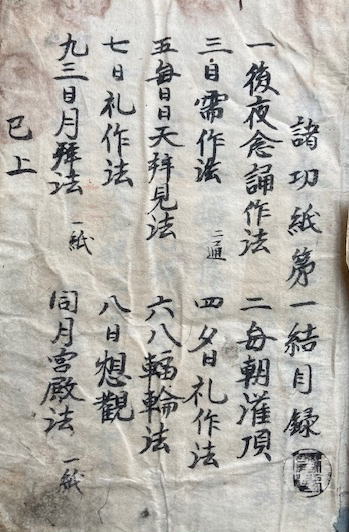 諸切紙第一結目録
一後夜念誦作法 二毎朝灌頂
三自需作法 二通 四夕日礼作法
五毎日日天拜見法 六八輻輪法
七日礼作法 八日想觀
九三日月拜法 一紙 同月宮殿法 一紙
已上